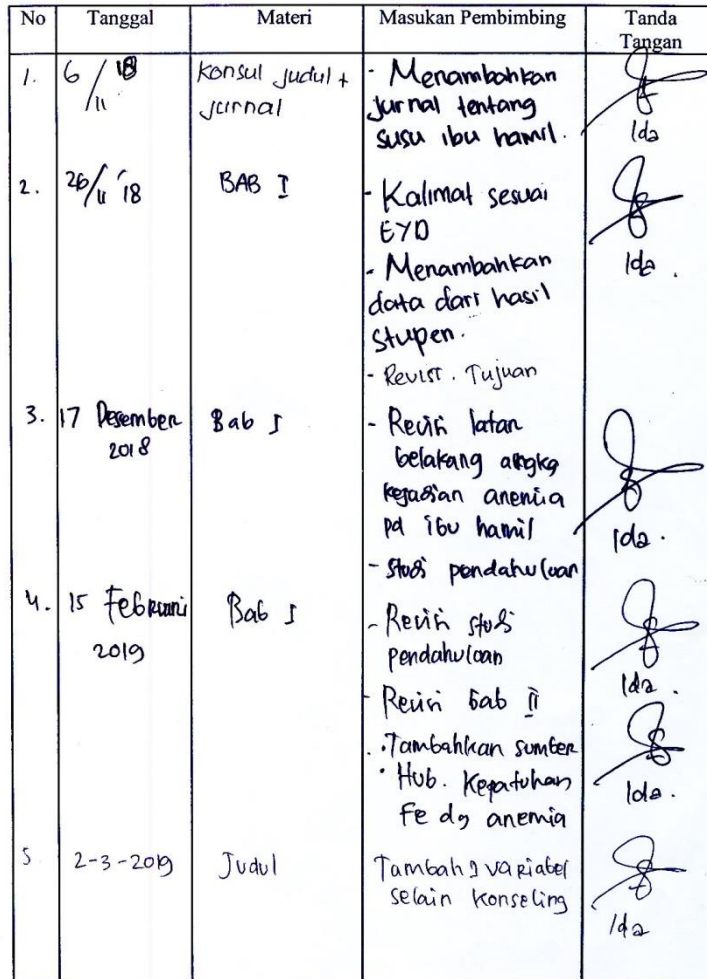 No Tanggal Materi Masukan Pembimbing Tanda Tangan
1. 6/11 '18 Konsul judul + - Menambahkan
jurnal jurnal tentang
susu ibu hamil. Ida
2. 26/11 '18 BAB I - Kalimat sesuai
EYD
- Menambahkan Ida.
data dari hasil
stupen.
- Revisi. Tujuan
3. 17 Desember Bab I - Revisi latar
2018 belakang angka
kejadian anemia
pd ibu hamil Ida.
- Studi pendahuluan
4. 15 Februari Bab I - Revisi studi
2019 pendahuluan
- Revisi bab II Ida.
. Tambahkan sumber
• Hub. Kepatuhan Ida.
Fe dg anemia
5 2-3-2019 Judul Tambah 1 variabel
selain konseling
Ida